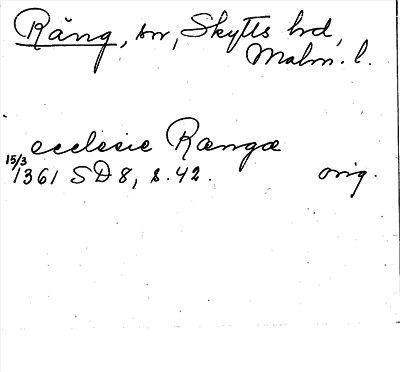 Räng, sn, Skytts hd,
Malm. l.
ecclesie Rængæ
15/3 1361 SD 8, s. 42. orig.